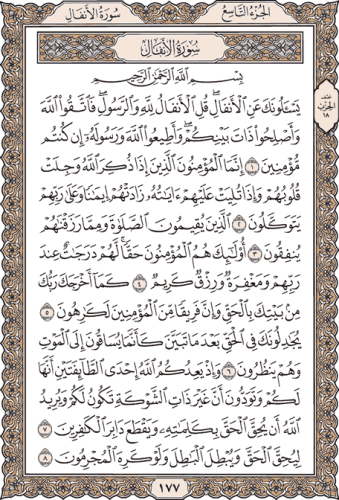 سُورَةُ الأَنفَالِ الجُزْءُ التَّاسِعُ
نصف الحزب ١٨
سُورَةُ الأَنفَالِ
بِسْمِ ٱللَّهِ ٱلرَّحْمَٰنِ ٱلرَّحِيمِ
يَسْـَٔلُونَكَ عَنِ ٱلْأَنفَالِ ۖ قُلِ ٱلْأَنفَالُ لِلَّهِ وَٱلرَّسُولِ ۖ فَٱتَّقُوا۟ ٱللَّهَ
وَأَصْلِحُوا۟ ذَاتَ بَيْنِكُمْ ۖ وَأَطِيعُوا۟ ٱللَّهَ وَرَسُولَهُۥٓ إِن كُنتُم
مُّؤْمِنِينَ ١ إِنَّمَا ٱلْمُؤْمِنُونَ ٱلَّذِينَ إِذَا ذُكِرَ ٱللَّهُ وَجِلَتْ
قُلُوبُهُمْ وَإِذَا تُلِيَتْ عَلَيْهِمْ ءَايَٰتُهُۥ زَادَتْهُمْ إِيمَٰنًا وَعَلَىٰ رَبِّهِمْ
يَتَوَكَّلُونَ ٢ ٱلَّذِينَ يُقِيمُونَ ٱلصَّلَوٰةَ وَمِمَّا رَزَقْنَٰهُمْ
يُنفِقُونَ ٣ أُو۟لَٰٓئِكَ هُمُ ٱلْمُؤْمِنُونَ حَقًّا ۚ لَّهُمْ دَرَجَٰتٌ عِندَ
رَبِّهِمْ وَمَغْفِرَةٌ وَرِزْقٌ كَرِيمٌ ٤ كَمَآ أَخْرَجَكَ رَبُّكَ
مِنۢ بَيْتِكَ بِٱلْحَقِّ وَإِنَّ فَرِيقًا مِّنَ ٱلْمُؤْمِنِينَ لَكَٰرِهُونَ ٥
يُجَٰدِلُونَكَ فِى ٱلْحَقِّ بَعْدَ مَا تَبَيَّنَ كَأَنَّمَا يُسَاقُونَ إِلَى ٱلْمَوْتِ
وَهُمْ يَنظُرُونَ ٦ وَإِذْ يَعِدُكُمُ ٱللَّهُ إِحْدَى ٱلطَّآئِفَتَيْنِ أَنَّهَا
لَكُمْ وَتَوَدُّونَ أَنَّ غَيْرَ ذَاتِ ٱلشَّوْكَةِ تَكُونُ لَكُمْ وَيُرِيدُ
ٱللَّهُ أَن يُحِقَّ ٱلْحَقَّ بِكَلِمَٰتِهِۦ وَيَقْطَعَ دَابِرَ ٱلْكَٰفِرِينَ ٧
لِيُحِقَّ ٱلْحَقَّ وَيُبْطِلَ ٱلْبَٰطِلَ وَلَوْ كَرِهَ ٱلْمُجْرِمُونَ ٨
١٧٧